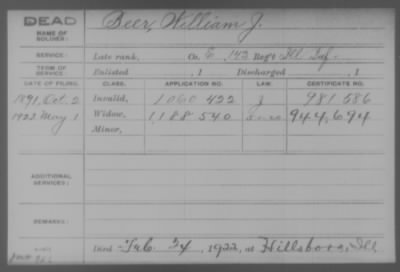 DEAD
NAME OF SOLDIER: Beer, William J.
SERVICE: Late rank, Co. E, 143 Reg't Ill Inf.
TERM OF SERVICE: Enlisted , 1 Discharged , 1
DATE OF FILING. CLASS. APPLICATION NO. LAW. CERTIFICATE NO.
1891, Oct. 2 Invalid, 1060 422 J 981 586
1922 May 1 Widow, 1188 540 944,694
Minor,
ADDITIONAL SERVICES:
REMARKS:
Died Feb. 24, 1922, at Hillsboro, Ill